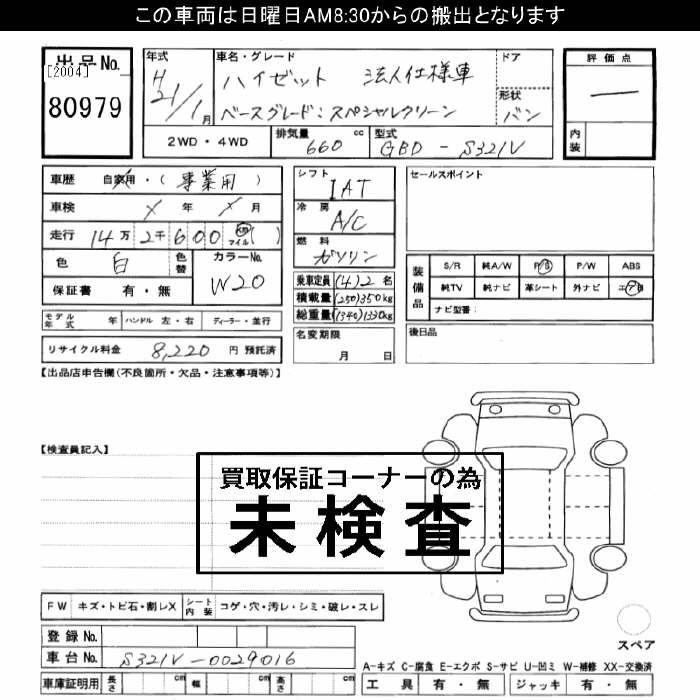 この車両は日曜日AM8:30からの搬出となります
出品No.
[2004]
80979
年式
H21/1月
車名・グレード
ハイゼット 法人仕様車
ベースグレード:スペシャルクリーン
ドア
形状
バン
評価点
―
内装
2WD・4WD
排気量 660 cc
型式 GBD-S321V
車歴 自家用・(事業用)
車検 ×年 ×月
走行 14万2千600 km マイル ( )
色 白 色替
カラーNo. W20
保証書 有・無
シフト IAT
冷房 A/C
燃料 ガソリン
乗車定員 (4)2 名
積載量 (250)350kg
総重量 (1340)1330kg
名変期限
月 日
セールスポイント
装備品
S/R 純A/W P/S P/W ABS
純TV 純ナビ 革シート 外ナビ
ナビ型番:
後日品
モデル年式 年 ハンドル 左・右 ディーラー・並行
リサイクル料金 8,220 円 預託済
【出品店申告欄(不良箇所・欠品・注意事項等)】
【検査員記入】
買取保証コーナーの為
未検査
FW キズ・トビ石・割レX シート内装 コゲ・穴・汚レ・シミ・破レ・スレ
登録No.
車台No. S321V-0029016
車庫証明用 長さ cm 幅 cm 高さ cm
スペア
A-キズ C-腐食 E-エクボ S-サビ U-凹ミ W-補修 XX-交換済
工具 有・無 ジャッキ 有・無